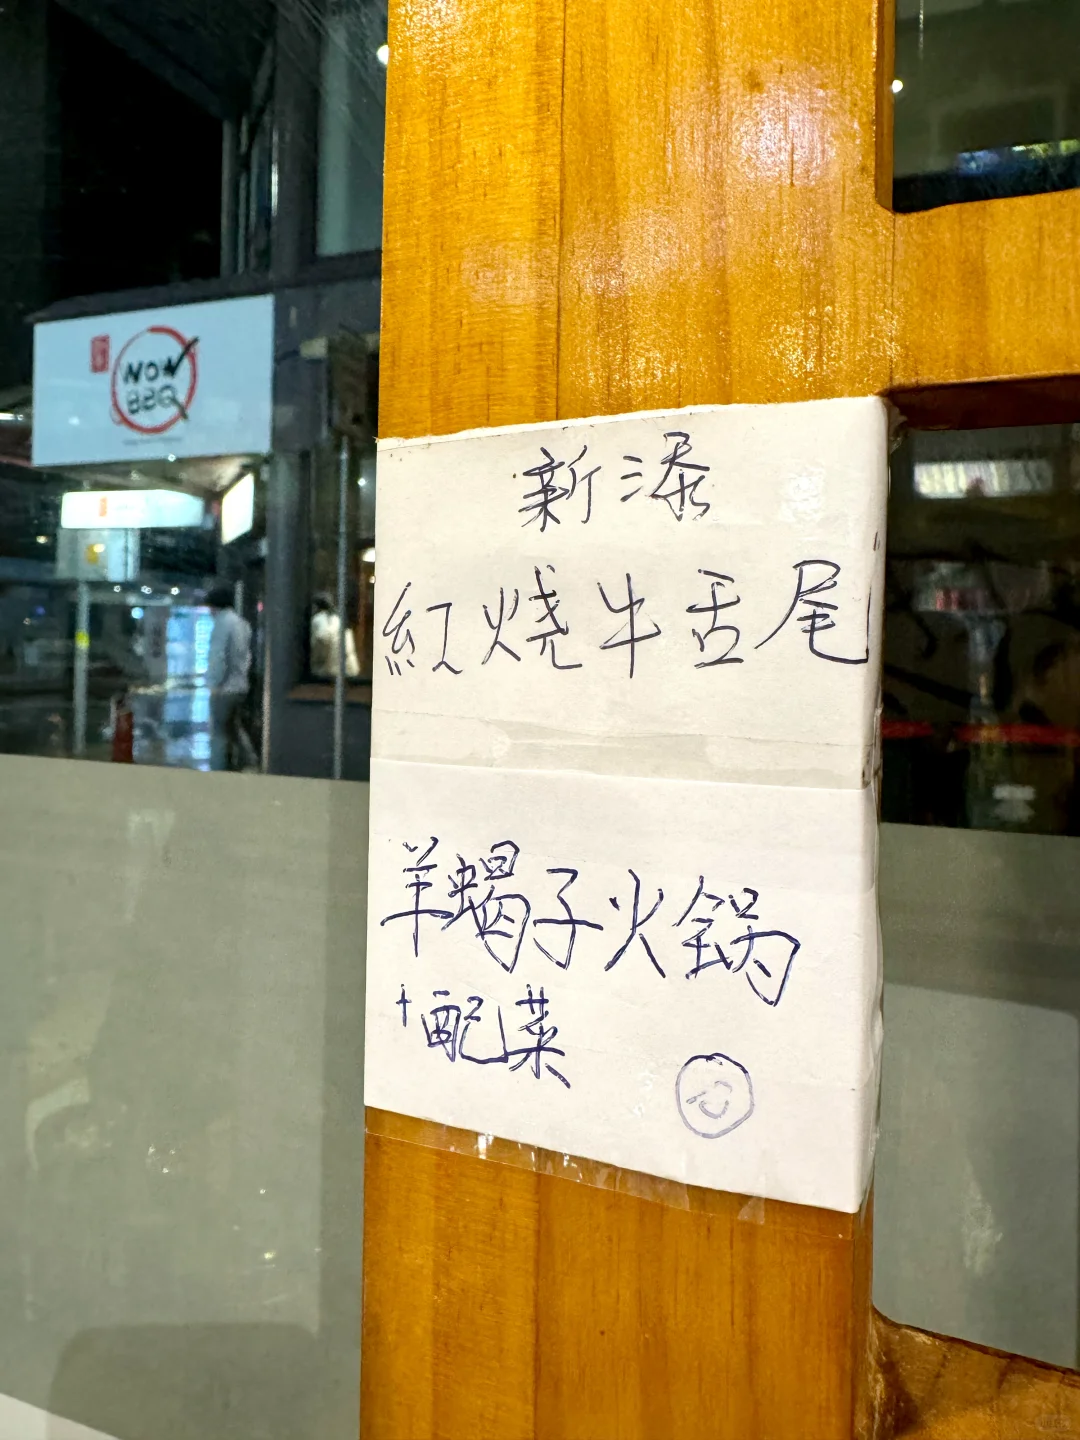 WOW
BBQ
新添
紅燒牛舌尾
羊蝎子火锅
+配菜